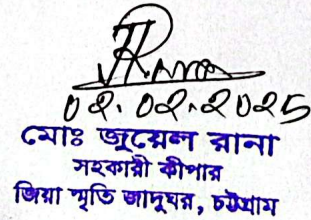 02.02.2025
মোঃ জুয়েল রানা
সহকারী কীপার
জিয়া স্মৃতি জাদুঘর, চট্টগ্রাম